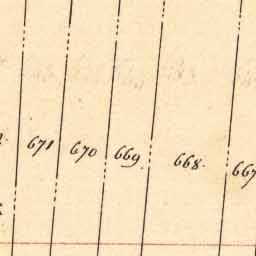 671 670 669. 668. 667